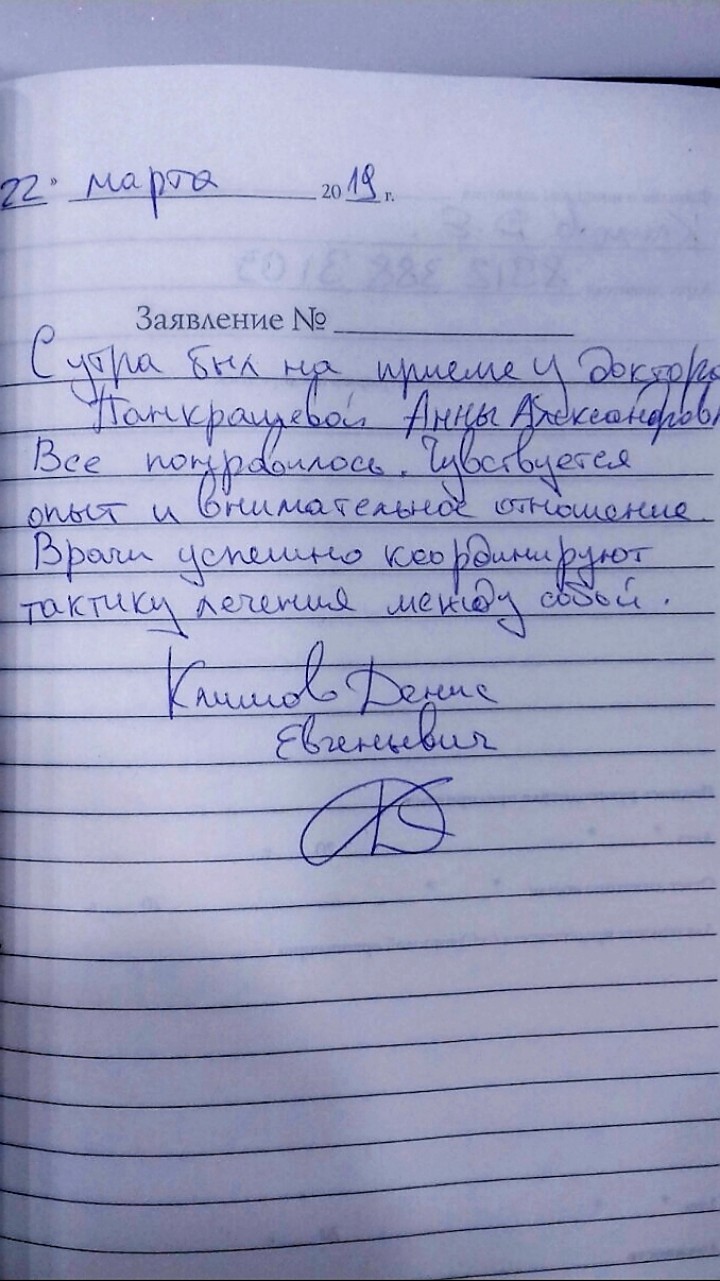 22" марта 2019 г.
Заявление №
С утра был на приеме у доктора
Панкращевой Анны Александров
Все понравилось. Чувствуется
опыт и внимательное отношение.
Врачи успешно координируют
тактику лечения между собой.
Климов Денис
Евгеньевич